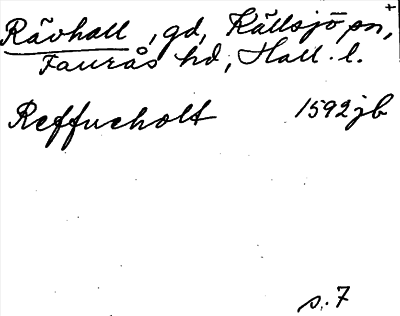 Rävhall, gd, Källsjö sn,
Faurås hd, Hall. l.
Reffueholt 1592 jb
s. 7